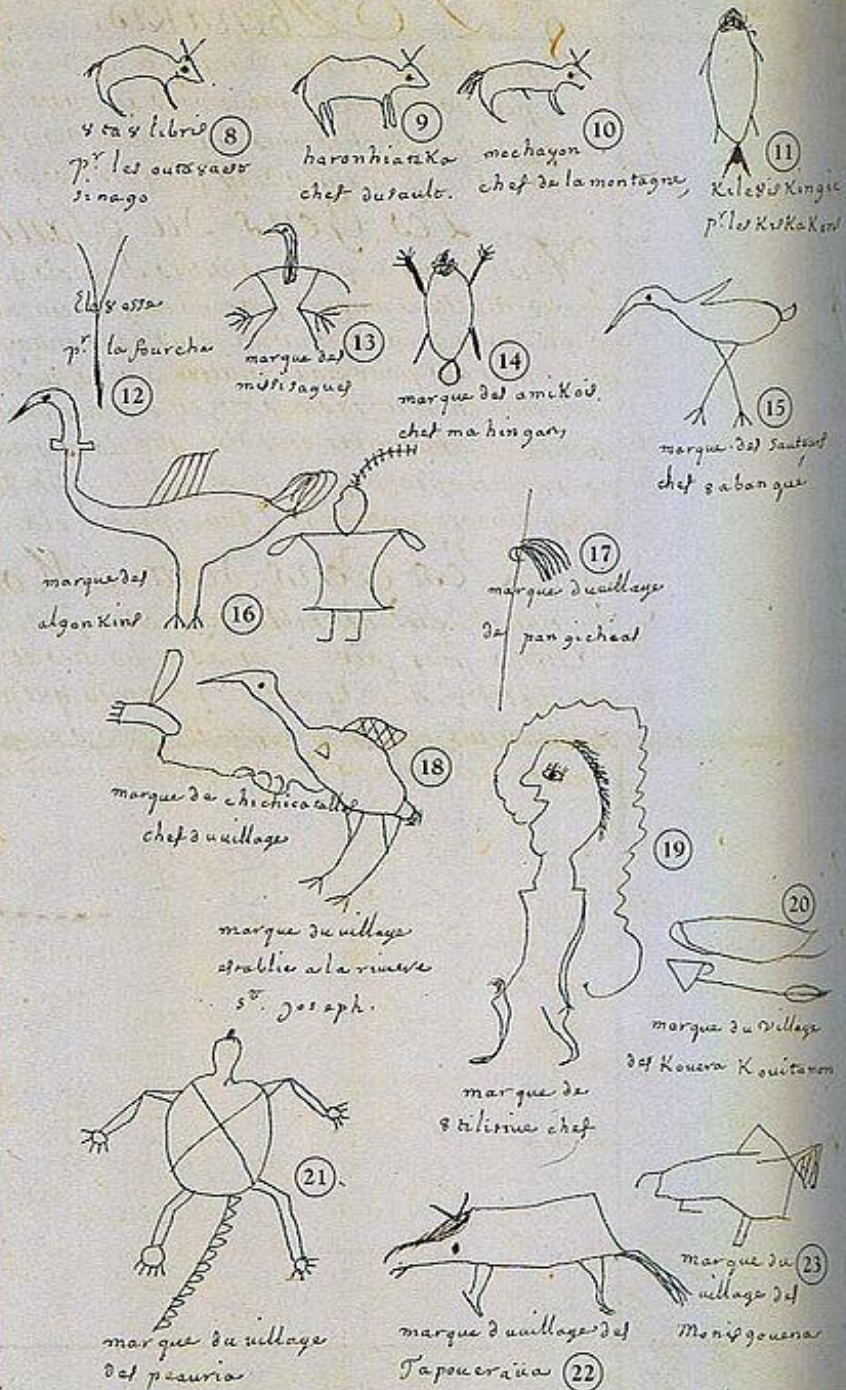 8ta8libris
pr les outa8aes
sinago
8
haronhiateka
chef du sault.
9
mechayon
chef de la montagne,
10
Kile8iskingie
pr les Kiskakons
11
Ele8asse
pr la fourche
12
marque des
missisagues
13
marque des amikois.
chef mahingan,
14
marque des sauteurs
chef 8abangué
15
marque des
algonkins
16
marque du village
de pangicheas
17
marque de chichicatallo
chef du village
18
marque du village
establie a la riviere
st. joseph.
marque de
8tilirine chef
19
20
marque du village
des Kouera Kouitanon
21
marque du village
des peauria
marque du village des
Tapoueraüa
22
marque du
village des
Monisgouena
23